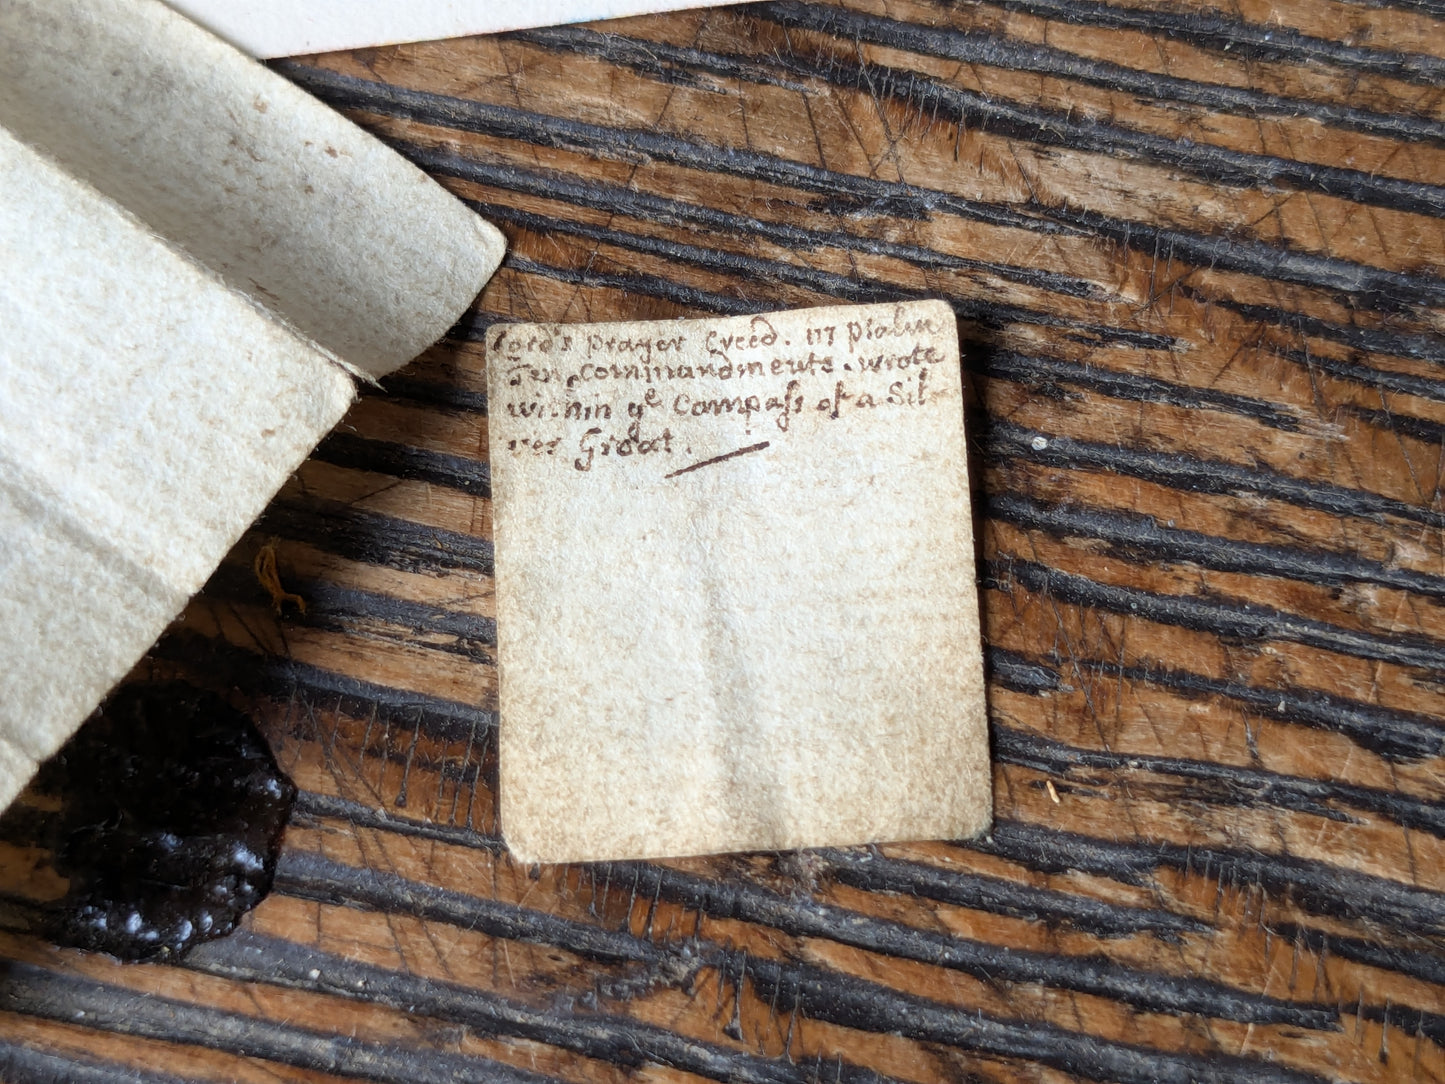 Lord's Prayer Creed. 117 Psalm
Ten Commandments. wrote
within ye Compaſs of a Sil-
ver Groat.